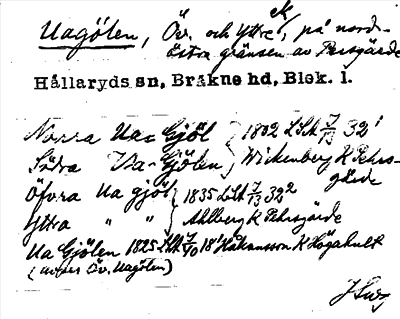 Uagölen, Öv. och Yttre, ek på nord-
östra gränsen av Persgärde
Hållaryds sn, Bräkne hd, Blek. l.
Norra Ua-Gjöl } 1802 LSk 7/13 32¹
Södra Ua-Gjölen } Wickenberg K Pehrs-
gärde
Öfvra Ua gjöl } 1835 LSk 7/13 32²
Yttra " " } Ahlberg K Pehrsgärde
Ua Gjölen 1825 LSk 7/10 18¹ Håkansson K Högahult
(avser Öv. Uagölen)